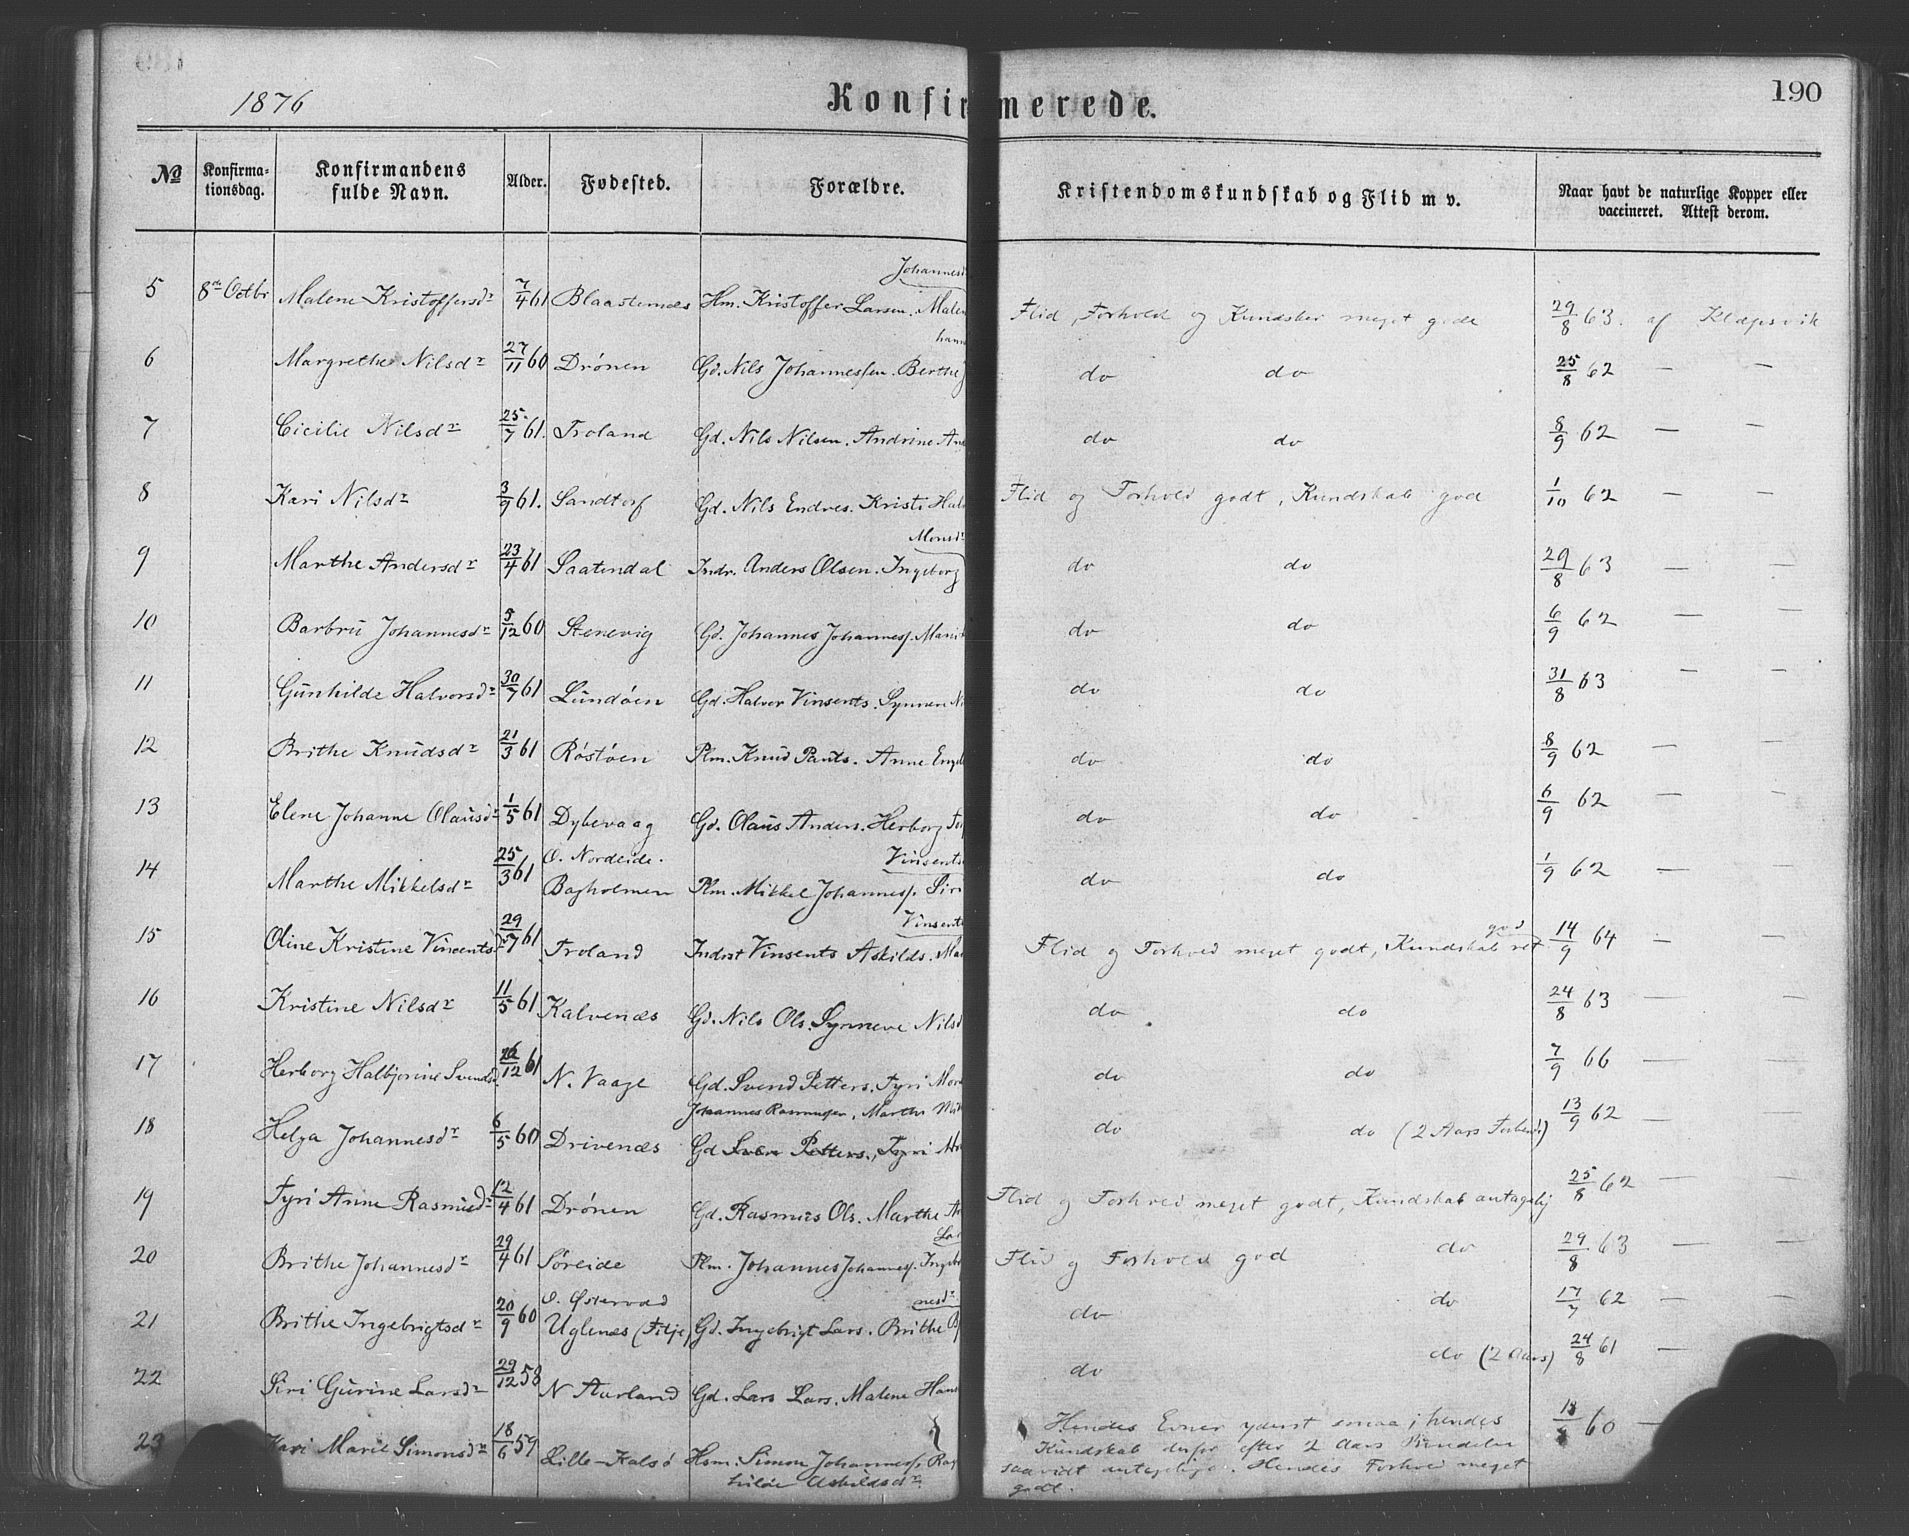 1876 Konfirmerede. 190
No Konfirmationsdag. Konfirmandens fulde Navn. Alder. Fødested. Forældre. Kristendomskundskab og Flid m v. Naar havt de naturlige Kopper eller vaccineret. Attest derom.
Johannesd
5 8de Octbr Malene Kristoffersdr 7/4 61 Blaastenæs Hm. Kristoffer Larsen. Malen Flid, Forhold og Kundskab meget gode 29/8 63. af Klæpsvik
hann
6 Margrethe Nilsdr 27/11 60 Drönen Gd. Nils Johannessen. Berthe J do do 25/8 62 — —
7 Cicilie Nilsdr 25/7 61. Troland Gd. Nils Nilsen. Andrine An do do 8/9 62 — —
8 Kari Nilsdr 3/9 61. Sandtorf Gd. Nils Endres. Kristi Hal Flid og Forhold godt, Kundskab god 1/10 62 — —
Monsdr
9 Marthe Andersdr 23/4 61 Saatendal Indr. Anders Olsen. Ingeborg do do 29/8 63 — —
10 Barbru Johannesdr 5/12 60 Stenevig Gd. Johannes Johanness. Mari do do 6/9 62 — —
11 Gunhilde Halvorsdr 30/7 61 Lundöen Gd. Halvor Vinsents. Synneva Ni do do 31/8 63 — —
12 Brithe Knudsdr 21/3 61 Röstöen Plm. Knud Pauls. Anne Engel do do 8/9 62 — —
13 Elene Johanne Olausdr 1/5 61 Dybevaag Gd. Olaus Anders. Herborg Tor do do 6/9 62 — —
O. Nordeide. Vinsents
14 Marthe Mikkelsdr 25/3 61 Bagholmen Plm. Mikkel Johanness. Siri do do 1/9 62 —
Vinsents god
15 Oline Kristine Vincentsd 29/7 61 Troland Indrst Vinsents Askilds. Ma Flid og Forhold meget godt, Kundskab ret 14/9 64 — —
16 Kristine Nilsdr 11/5 61 Kalvenæs Gd. Nils Ols. Synneve Nilsd do do 24/8 63 — —
17 Herborg Halbjorine Svends 26/12 61 N. Vaage Gd. Svend Petters. Tyri Mon do do 7/9 66 — —
Johannes Rasmussen, Marthe
18 Helga Johannesdr 6/5 60 Drivenæs Gd Petters., Tyri do do (2 Aars Forbered) 13/9 62 — —
19 Tyri Anne Rasmusdr 12/4 61 Drönen Gd. Rasmus Ols. Marthe Flid og Forhold meget godt, Kundskab antagelig 25/8 62 — —
Lar
20 Brithe Johannesdr 29/4 61 Söreide Plm. Johannes Johanness. Ingeb Flid og Forhold god do 29/8 63 — —
O. Østervold nesdr
21 Brithe Ingebrigtsdr 20/9 60 Uglenæs (Fitje) Gd. Ingebrigt Lars. Brithe do do 17/7 62 — —
22 Siri Gurine Larsdr 29/12 58 N Aarland Gd. Lars Lars. Malene Hans do do (2 Aars) 24/8 61 —
23 Kari Marie Simonsdr 18/6 59 Lille-Kalsö Hsm. Simon Johanness. Rag Hendes Evner yderst smaa i hendes 60 —
hilde Askildsdr Kundskab derfor efter 2 Aars
saavidt antagelige. Hendes Forhold meget
godt.